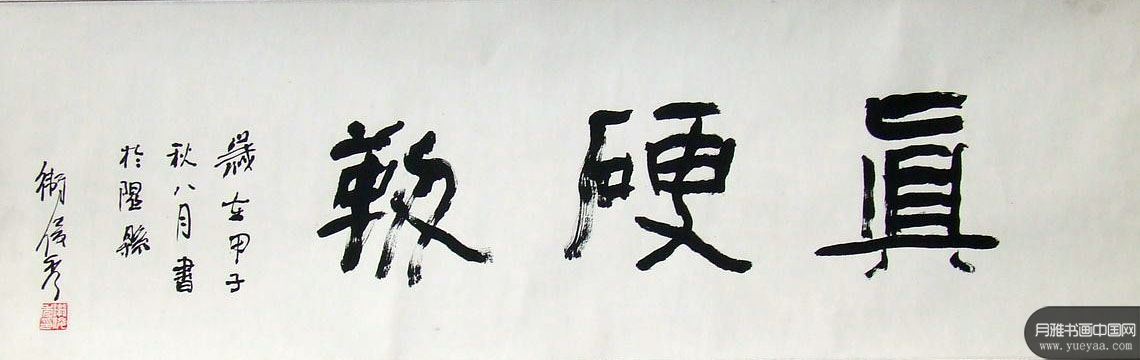 眞硬
歲在甲子
秋八月書
於隰縣
衛俊秀
月雅书画中国网
www.yueyaa.com